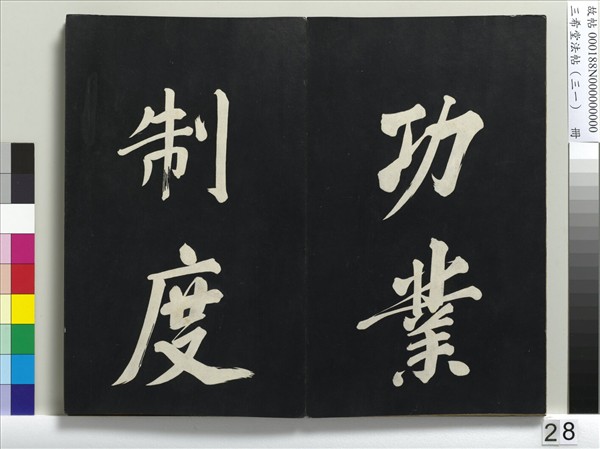 功業
制度
故帖 000188N000000000
三希堂法帖（三一） 冊
28